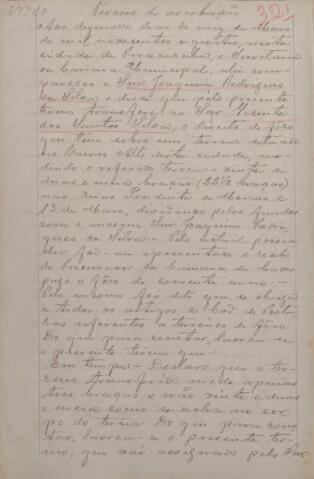 Nº 10 Termo de averbação 321
Aos dezenove dias do mez de Maio
de mil novecentos e vinte, nesta
cidade de Piracicaba, e Secretaria
da Camara Municipal, ahi com-
pareceu o Snr Joaquim Rodrigues
da Silva e disse que pelo presente
termo transfere ao Snr. Vicente
dos Santos Silva, o direito de fôro
que tem sobre um terreno situado
no Bairro Alto desta cidade, me-
dindo o referido terreno vinte e
duas e meia braças (22½ braças)
nas ruas Prudente de Moraes e
13 de Maio, dividindo pelos fundos
com o mesmo Snr Joaquim Rodri-
gues da Silva. Pelo actual possui-
dor foi me apresentado o recibo
do Procurador da Camara de haver
pago o fôro do corrente anno.
Pelo mesmo foi dito que se obriga
a todos os artigos do Cod. de Postu-
ras referentes a terrenos de fôro.
Do que para constar, lavrou-se
o presente termo que
Em tempo: Declaro que o ter-
reno transferido mede apenas
tres braças e não vinte e duas
e meia como se acha no cor-
po do termo. Do que para cons-
tar, lavrou-se o presente ter-
mo, que vai assignado pelo